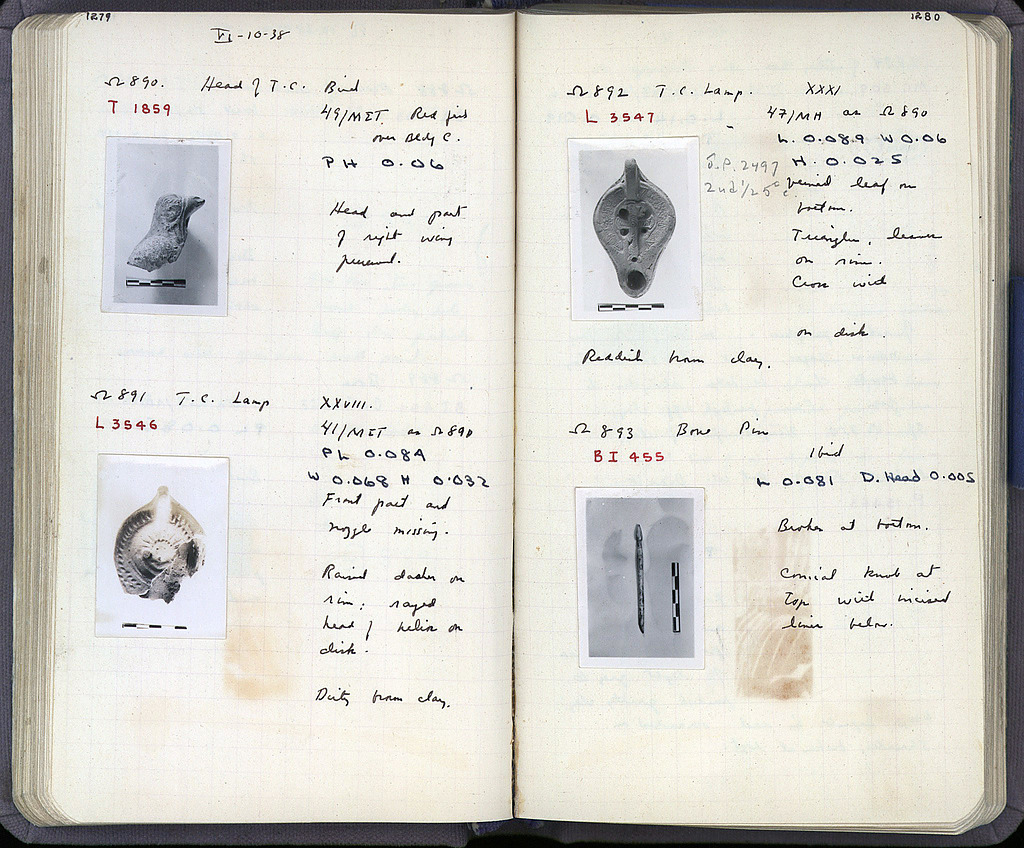 1279
VI-10-38
Ω 890. Head of T.C. Bird
T 1859
49/MET. Red fill
over Bldg C.
PH 0.06
Head and part
of right wing
preserved.
Ω 891 T.C. Lamp XXVIII.
L 3546
41/MET as Ω 890
PL 0.084
W 0.068 H 0.032
Front part and
nozzle missing.
Raised dashes on
rim; rayed
head of helios on
disk.
Dirty brown clay.
1280
Ω 892 T.C. Lamp. XXXI
L 3547
47/MH as Ω 890
L. 0.089 W 0.06
H. 0.025
J.P. 2497
2nd 1/2 5th c.
veined leaf on
bottom.
Triangles, leaves
on rim.
Cross with
on disk.
Reddish brown clay.
Ω 893 Bone Pin
BI 455
Ibid
L 0.081 D. Head 0.005
Broken at bottom.
Conical knob at
top with incised
lines below.